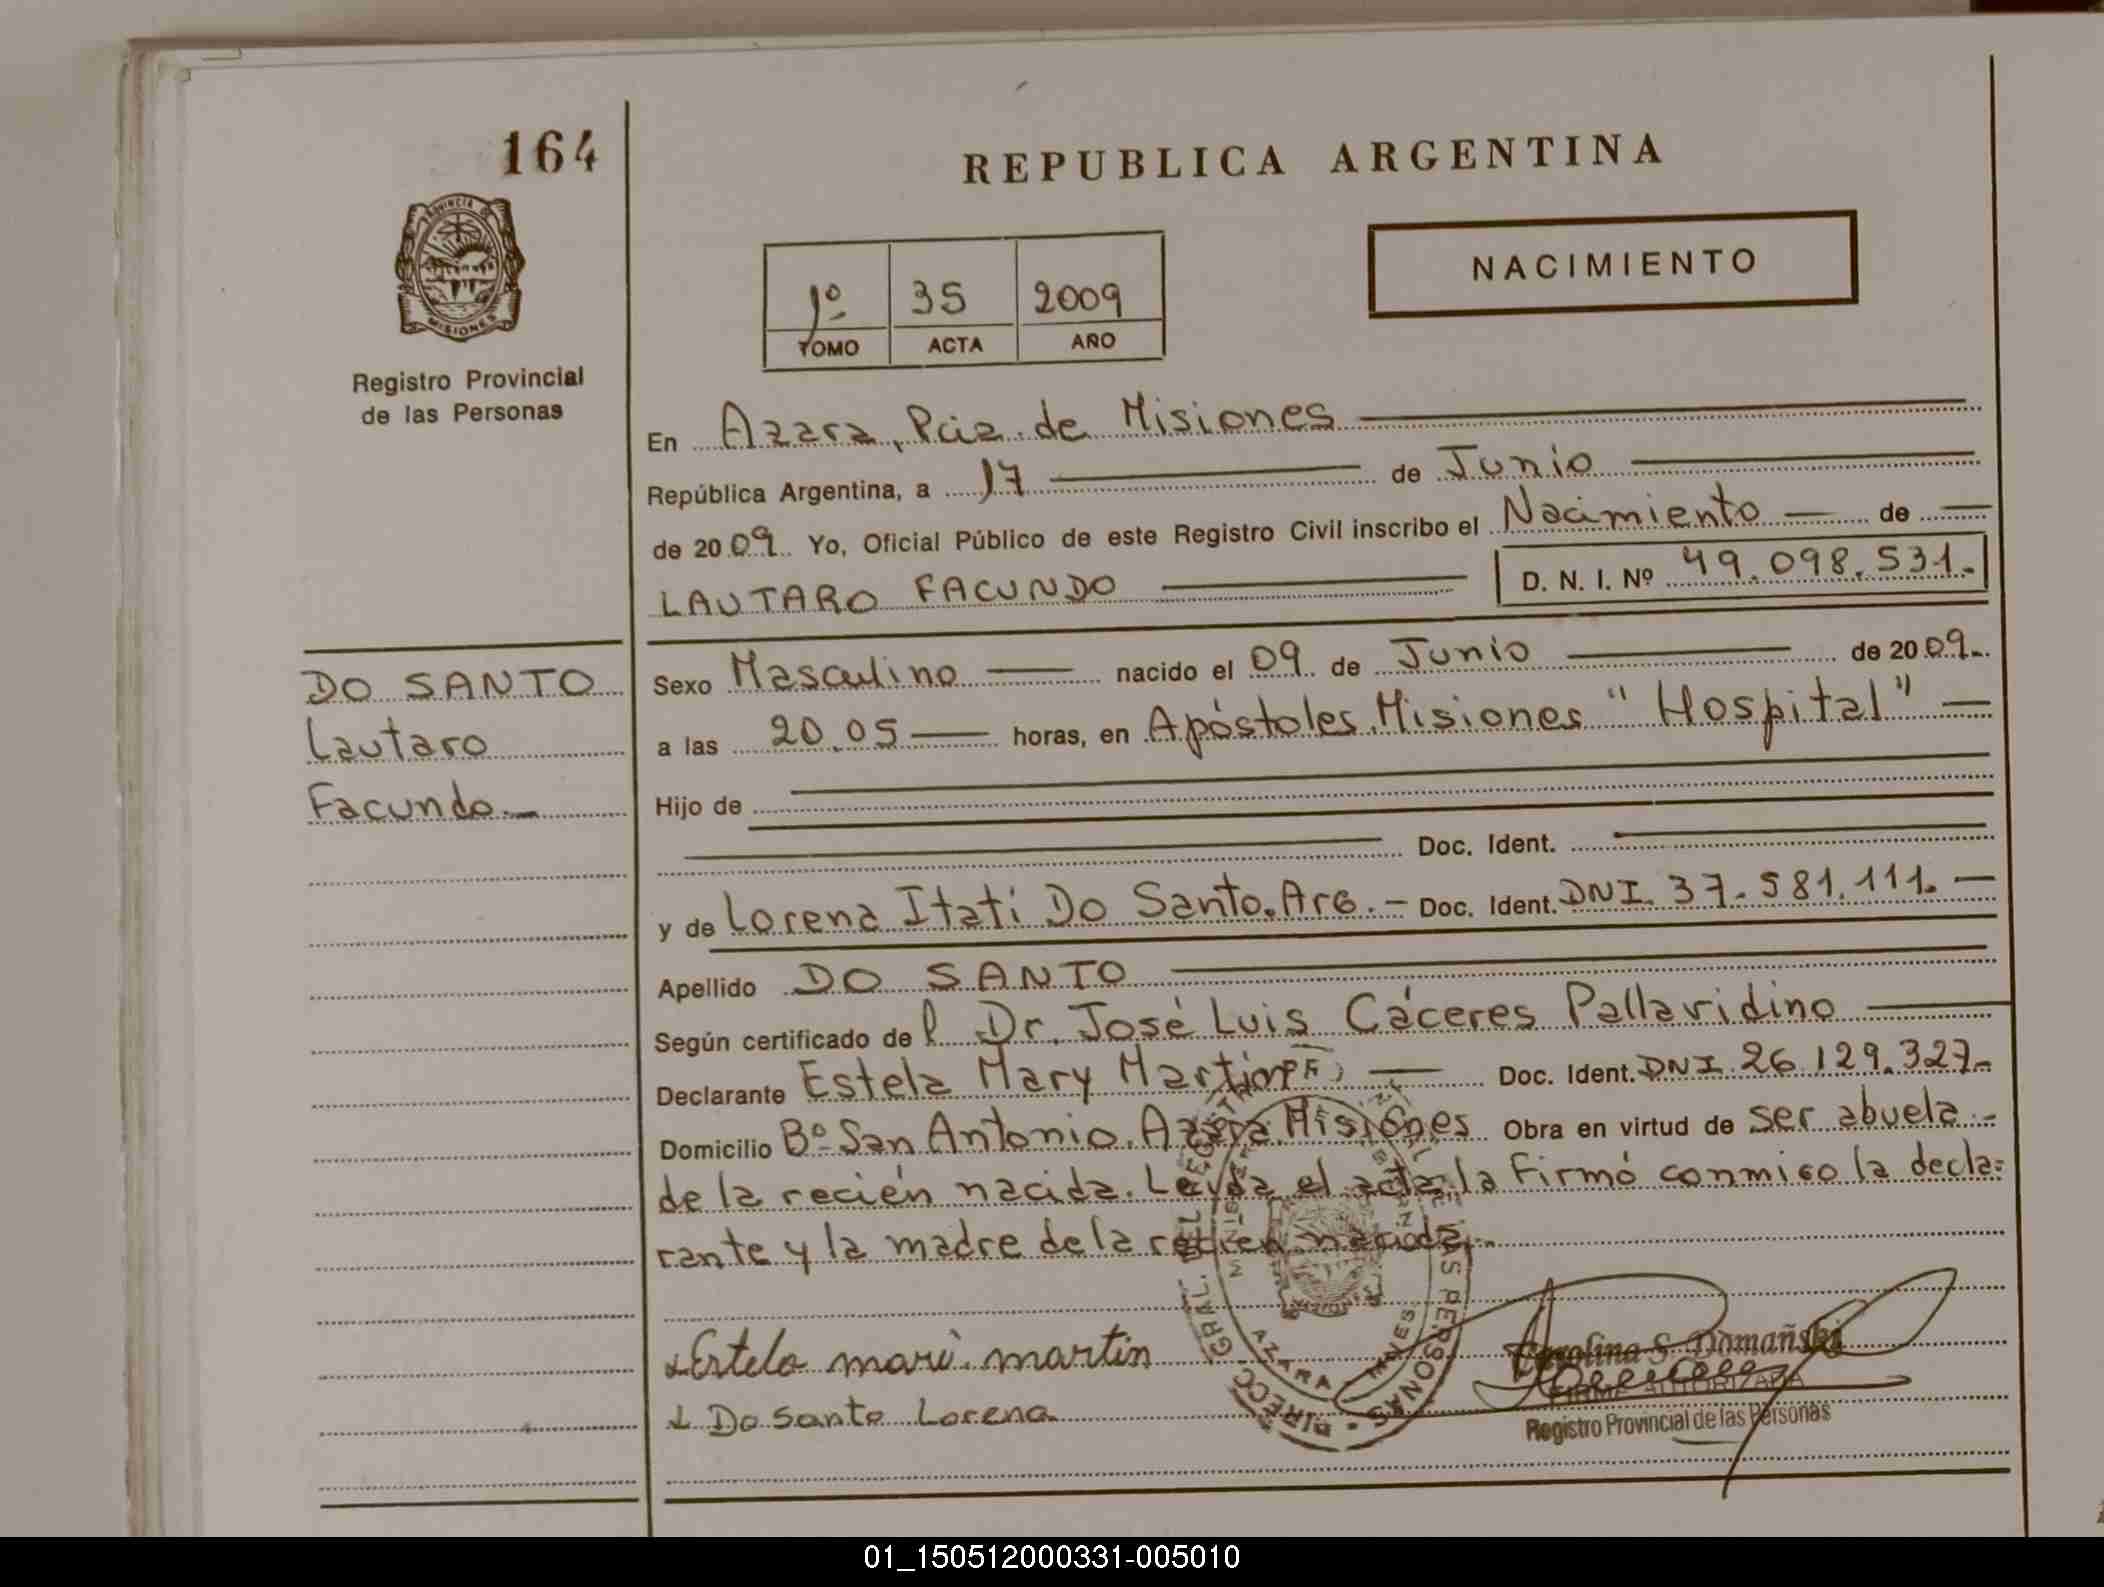 164
PROVINCIA DE
MISIONES
Registro Provincial
de las Personas
REPUBLICA ARGENTINA
NACIMIENTO
1º 35 2009
TOMO ACTA AÑO
En Azara, Pcia. de Misiones
República Argentina, a 17 de Junio
de 2009. Yo, Oficial Público de este Registro Civil inscribo el Nacimiento de
LAUTARO FACUNDO D. N. I. Nº 49.098.531.
DO SANTO
Lautaro
Facundo.
Sexo Masculino nacido el 09 de Junio de 2009.
a las 20.05 horas, en Apóstoles, Misiones "Hospital"
Hijo de
Doc. Ident.
y de Lorena Itatí Do Santo. Arg. Doc. Ident. DNI. 37.581.111.
Apellido DO SANTO
Según certificado del Dr. José Luis Cáceres Pallavidino
Declarante Estela Mary Martin (F) Doc. Ident. DNI 26.129.327.
Domicilio Bº San Antonio. Azara. Misiones Obra en virtud de ser abuela
de la recién nacida. Leída el acta, la firmó conmigo la decla=
rante y la madre de la recién nacida.
Estela mari martin
Do santo Lorena
Carolina S. Domañski
FIRMA AUTORIZADA
Registro Provincial de las Personas
AZARA
01_150512000331-005010